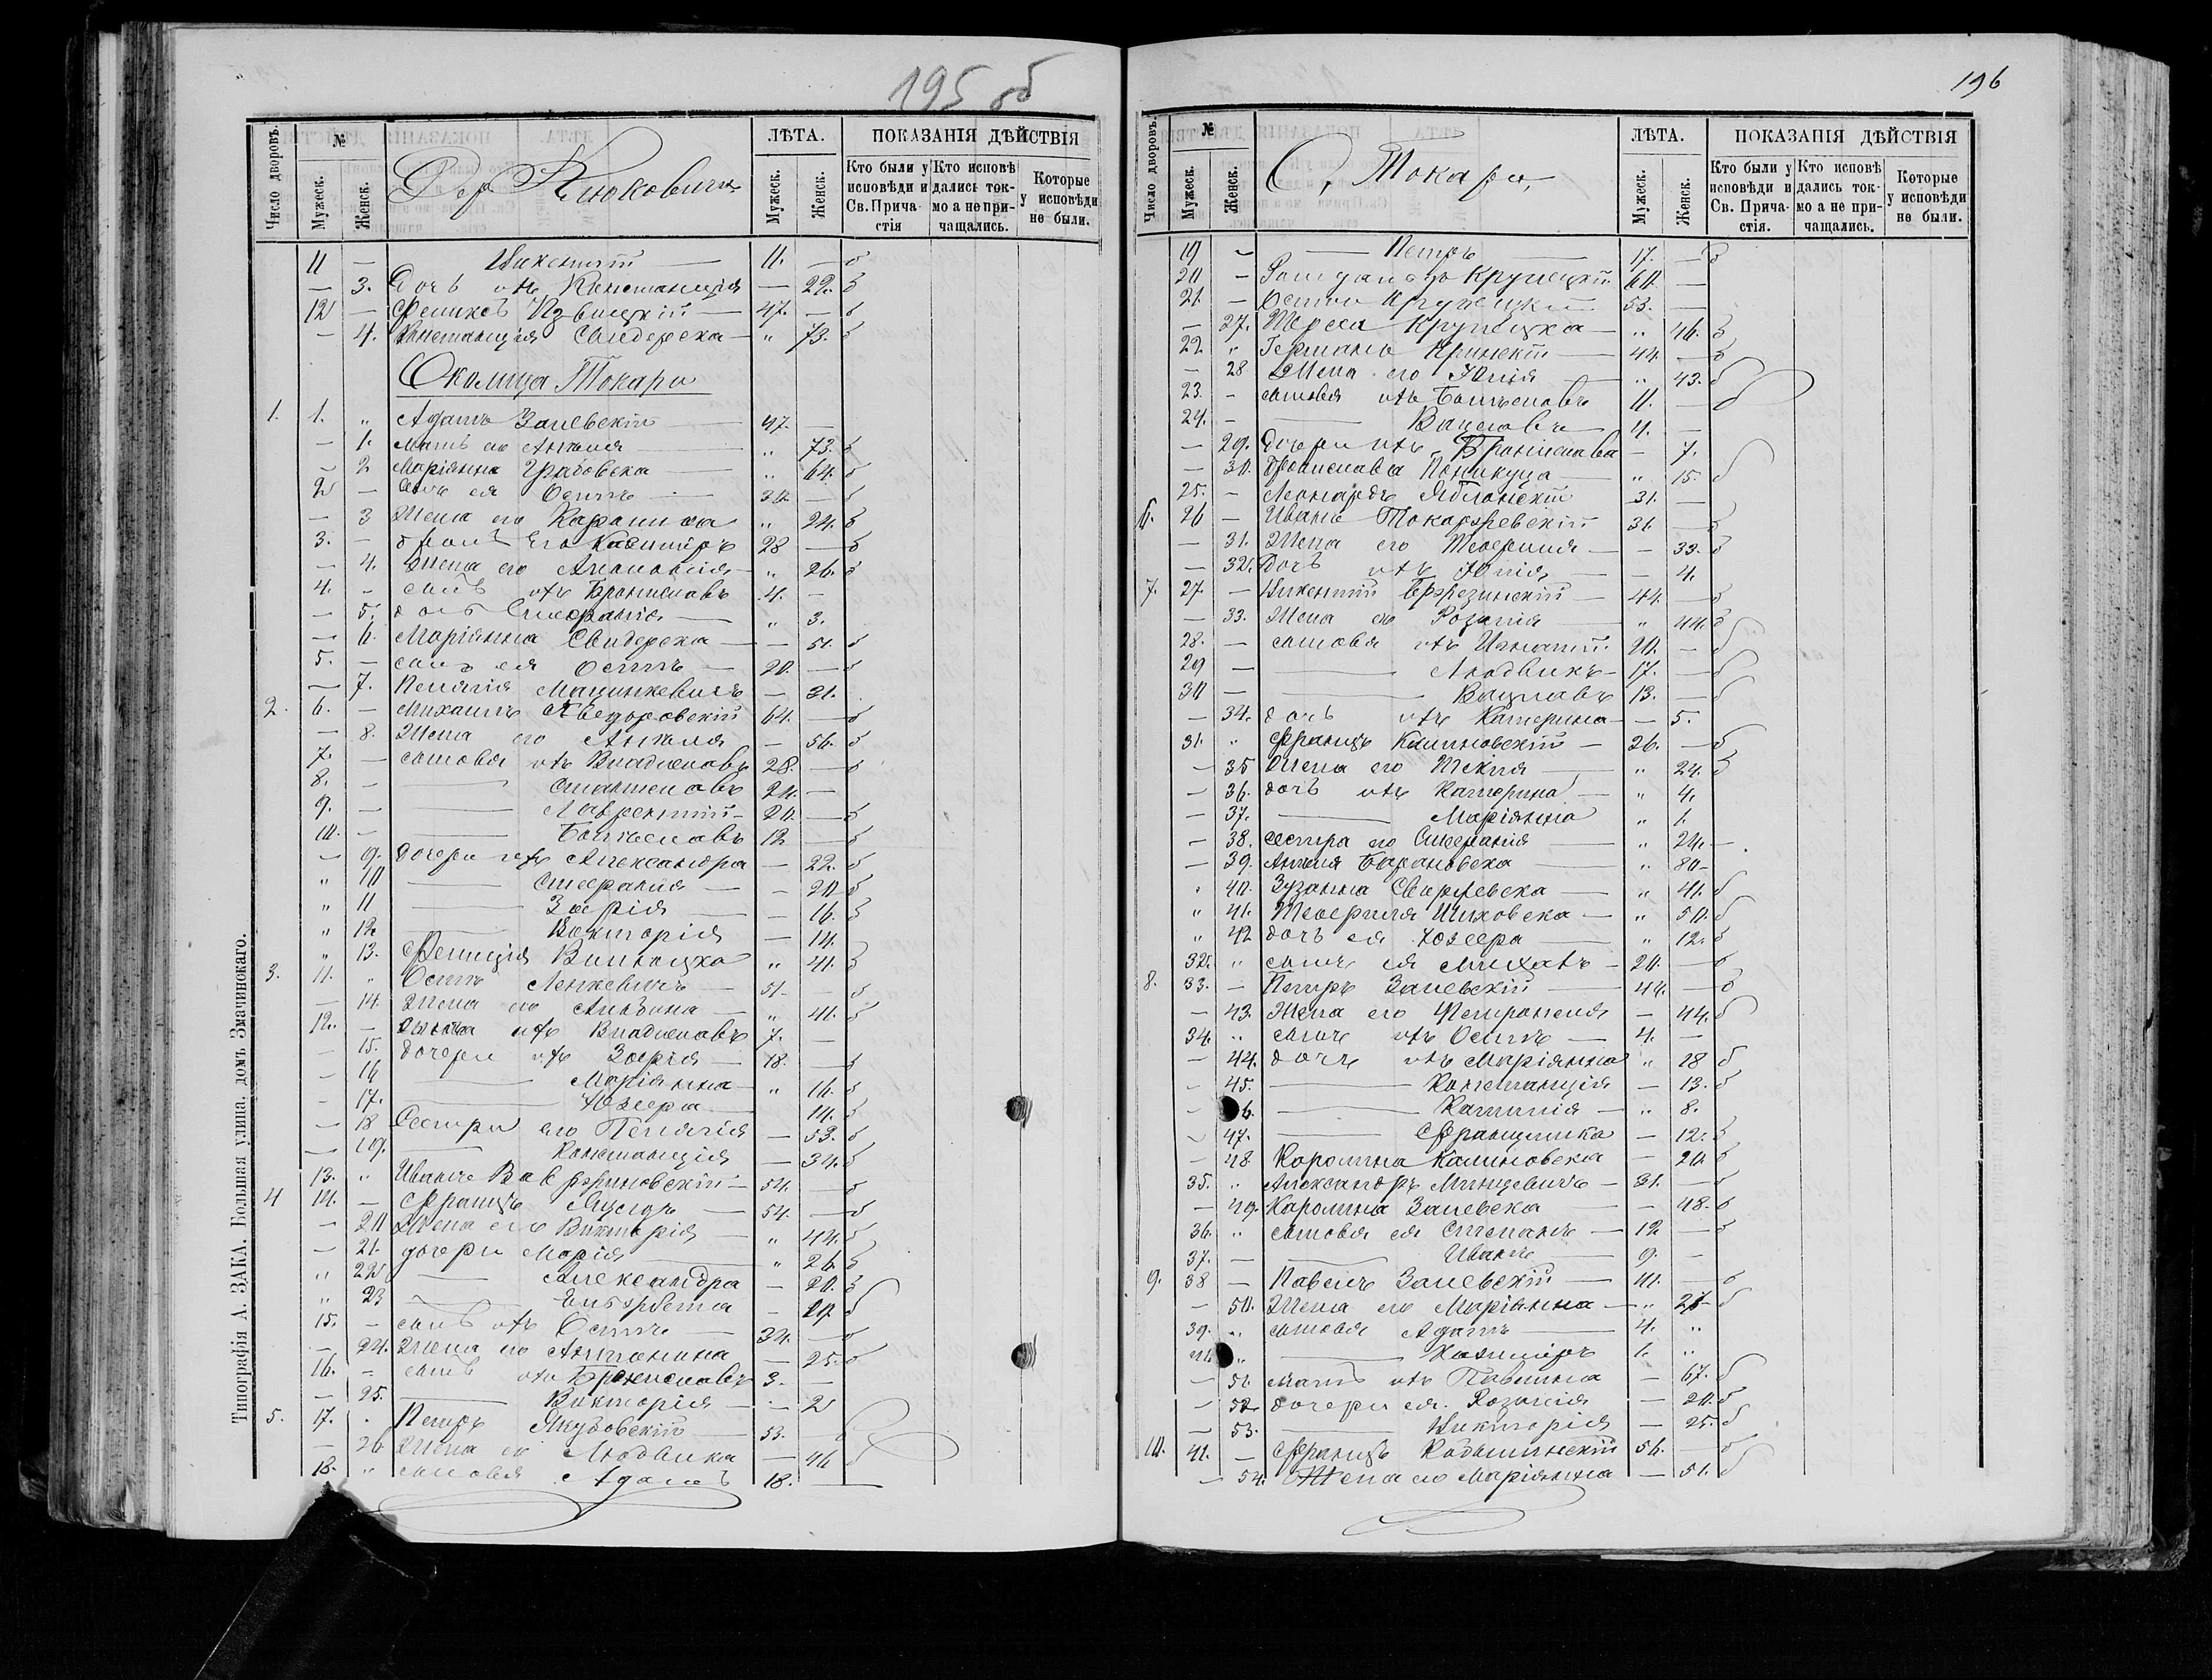 195 об
Число дворовъ. № Мужеск. Женск. Дер Клюковичи ЛѢТА. Мужеск. Женск. ПОКАЗАНІЯ ДѢЙСТВІЯ
Кто были у исповѣди и Св. Прича-стія Кто исповѣ дались ток-мо а не при-чащались. Которые у исповѣди не были.
11 — Викентій — 11. — б
— 3. Дочь ихъ Констанція — 22. б
12 — Феликсъ — 47. — б
— 4. Констанція Свидерска — „ 73. б
Околица Токари
1. 1. „ Адамъ Залевскій — 47. —
— 1. Мать его Анеля — „ 73. б
— 2 Маріанна — „ 64. б
2 — Сынъ ея Осипъ — 34. — б
— 3 Жена его Каролина „ 24. б
3. — братъ его Казиміръ 28 — б
— 4. Жена его Аполонія — „ 26. б
4. — сынъ ихъ Брониславъ 4. —
— 5. дочь Стефанія — „ 3.
— 6. Маріянна Свидерска — — 51. б
5. — сынъ ея Осипъ — 20. — б
— 7. Пелагія Мацинкевичъ — 31.
2. 6. — Михаилъ 64. — б
— 8. Жена его Анеля — 56. б
7. — сыновья ихъ Владиславъ 28. — б
8. — Станиславъ 24. —
9. — Лаврентій — 20. — б
10. — Болеславъ 12 — б
— 9. Дочери ихъ Александра — 22. б
„ 10 — Стефанія — — 20 б
„ 11 — Зофія — — 16. б
„ 12 — Викторія — 14.
„ 13. Фелиція „ 41. б
3. 11. „ Осипъ Ленкевичъ — 51. — б
— 14. Жена его — „ 41. б
12. — ихъ Владиславъ 7. —
— 15. Дочери ихъ Зофія — 18. — б
— 16 — Маріянна — „ 16. б
— 17. — Юзефа — 14. б
— 18 Сестры его Пелагія — 53. б
— 19. — Констанція — 34. б
13. „ Иванъ — 54. — б
4 14. — Францъ — 54. — б
— 20 Жена его Викторія — „ 44. б
— 21. дочери Марія — „ 26. б
„ 22 — Александра — 20. б
„ 23 — Ельжбета — 20. б
15. — сынъ ихъ Осипъ — 34. — б
— 24. Жена его Антонина — 25. б
16. — сынъ ихъ Брониславъ 3. —
— 25. — Викторія — — 2
5. 17. „ Петръ Якубовскій — 53. — б
— 26 Жена его Людвика — 46 б
18. „ сыновья Адамъ 18. —
Типографія А. ЗАКА. Большая улица. домъ Значинскаго.
196
Число дворовъ. № Мужеск. Женск. О, Токари, ЛѢТА. Мужеск. Женск. ПОКАЗАНІЯ ДѢЙСТВІЯ
Кто были у исповѣди и Св. Прича-стія. Кто исповѣ дались ток-мо а не при-чащались. Которые у исповѣди не были.
19 — Петръ — 17. — б
20 — Крупецкій 60. —
21. — Осипъ Крупецкій 53. —
— 27. Крупецка — „ 46. б
22. „ Германъ — 44. — б
— 28 Жена его Юлія — „ 43. б
23. — сыновья ихъ Болеславъ 11. — б
24. — Вацлавъ 4. —
— 29. Дочери ихъ Бронислава — 7.
— 30. Бронислава — „ 15. б
25. — Леонардъ Яблонскій 31. —
6. 26 — Иванъ Токаржевскій 31. — б
— 31. Жена его Теофиля — — 33. б
— 32. Дочь ихъ Юлія — — 4.
7. 27. — Викентій Бржезинскій — 44. — б
— 33. Жена его Розалія — „ 44. б
28. — сыновья ихъ Игнатій 20. — б
29 — Людвикъ — 17. — б
30 — Вацлавъ 13. — б
— 34. дочь ихъ Катерина — — 5.
31. „ Францъ Калиновскій — 26. — б
— 35 Жена его Текля — „ 24. б
— 36. дочь ихъ Катерина — „ 4.
— 37. — Маріянна „ 1.
— 38. сестра его Стефанія — „ 24. —
— 39. Анеля Барановска — „ 80 —
„ 40. Зузанна — „ 41. б
„ 41. Теофиля — „ 50. б
„ 42 дочь ея Юзефа — „ 12. б
32. „ сынъ ея — 20. — б
8. 33. — Петръ Залевскій — 44. — б
— 43. Жена его Петронеля — 44. б
34. „ сынъ ихъ Осипъ — 4. —
— 44. дочь ихъ Маріянна „ 18 б
— 45. — Констанція — 13. б
— 6. — — „ 8.
— 47. — Францишка — 12. б
— 48 Каролина Калиновска — 20. б
35. „ Александръ — 31. — б
— 49. Каролина Залевска — — 48. б
36. „ сыновья ея Степанъ — 12 — б
37. — Иванъ — 9. —
9. 38 — Павелъ Залевскій — — б
— 50. Жена его Маріянна — „ б
39. „ сыновья Адамъ — 4. „
„ — Казиміръ 1. „
— 51. мать ихъ Павлина — 67. б
— 52. дочери ея. Розалія — 20. б
— 53. — Викторія — 25. б
10. 41. — Францъ 56. — б
— 54. Жена его Маріянна — 51. б